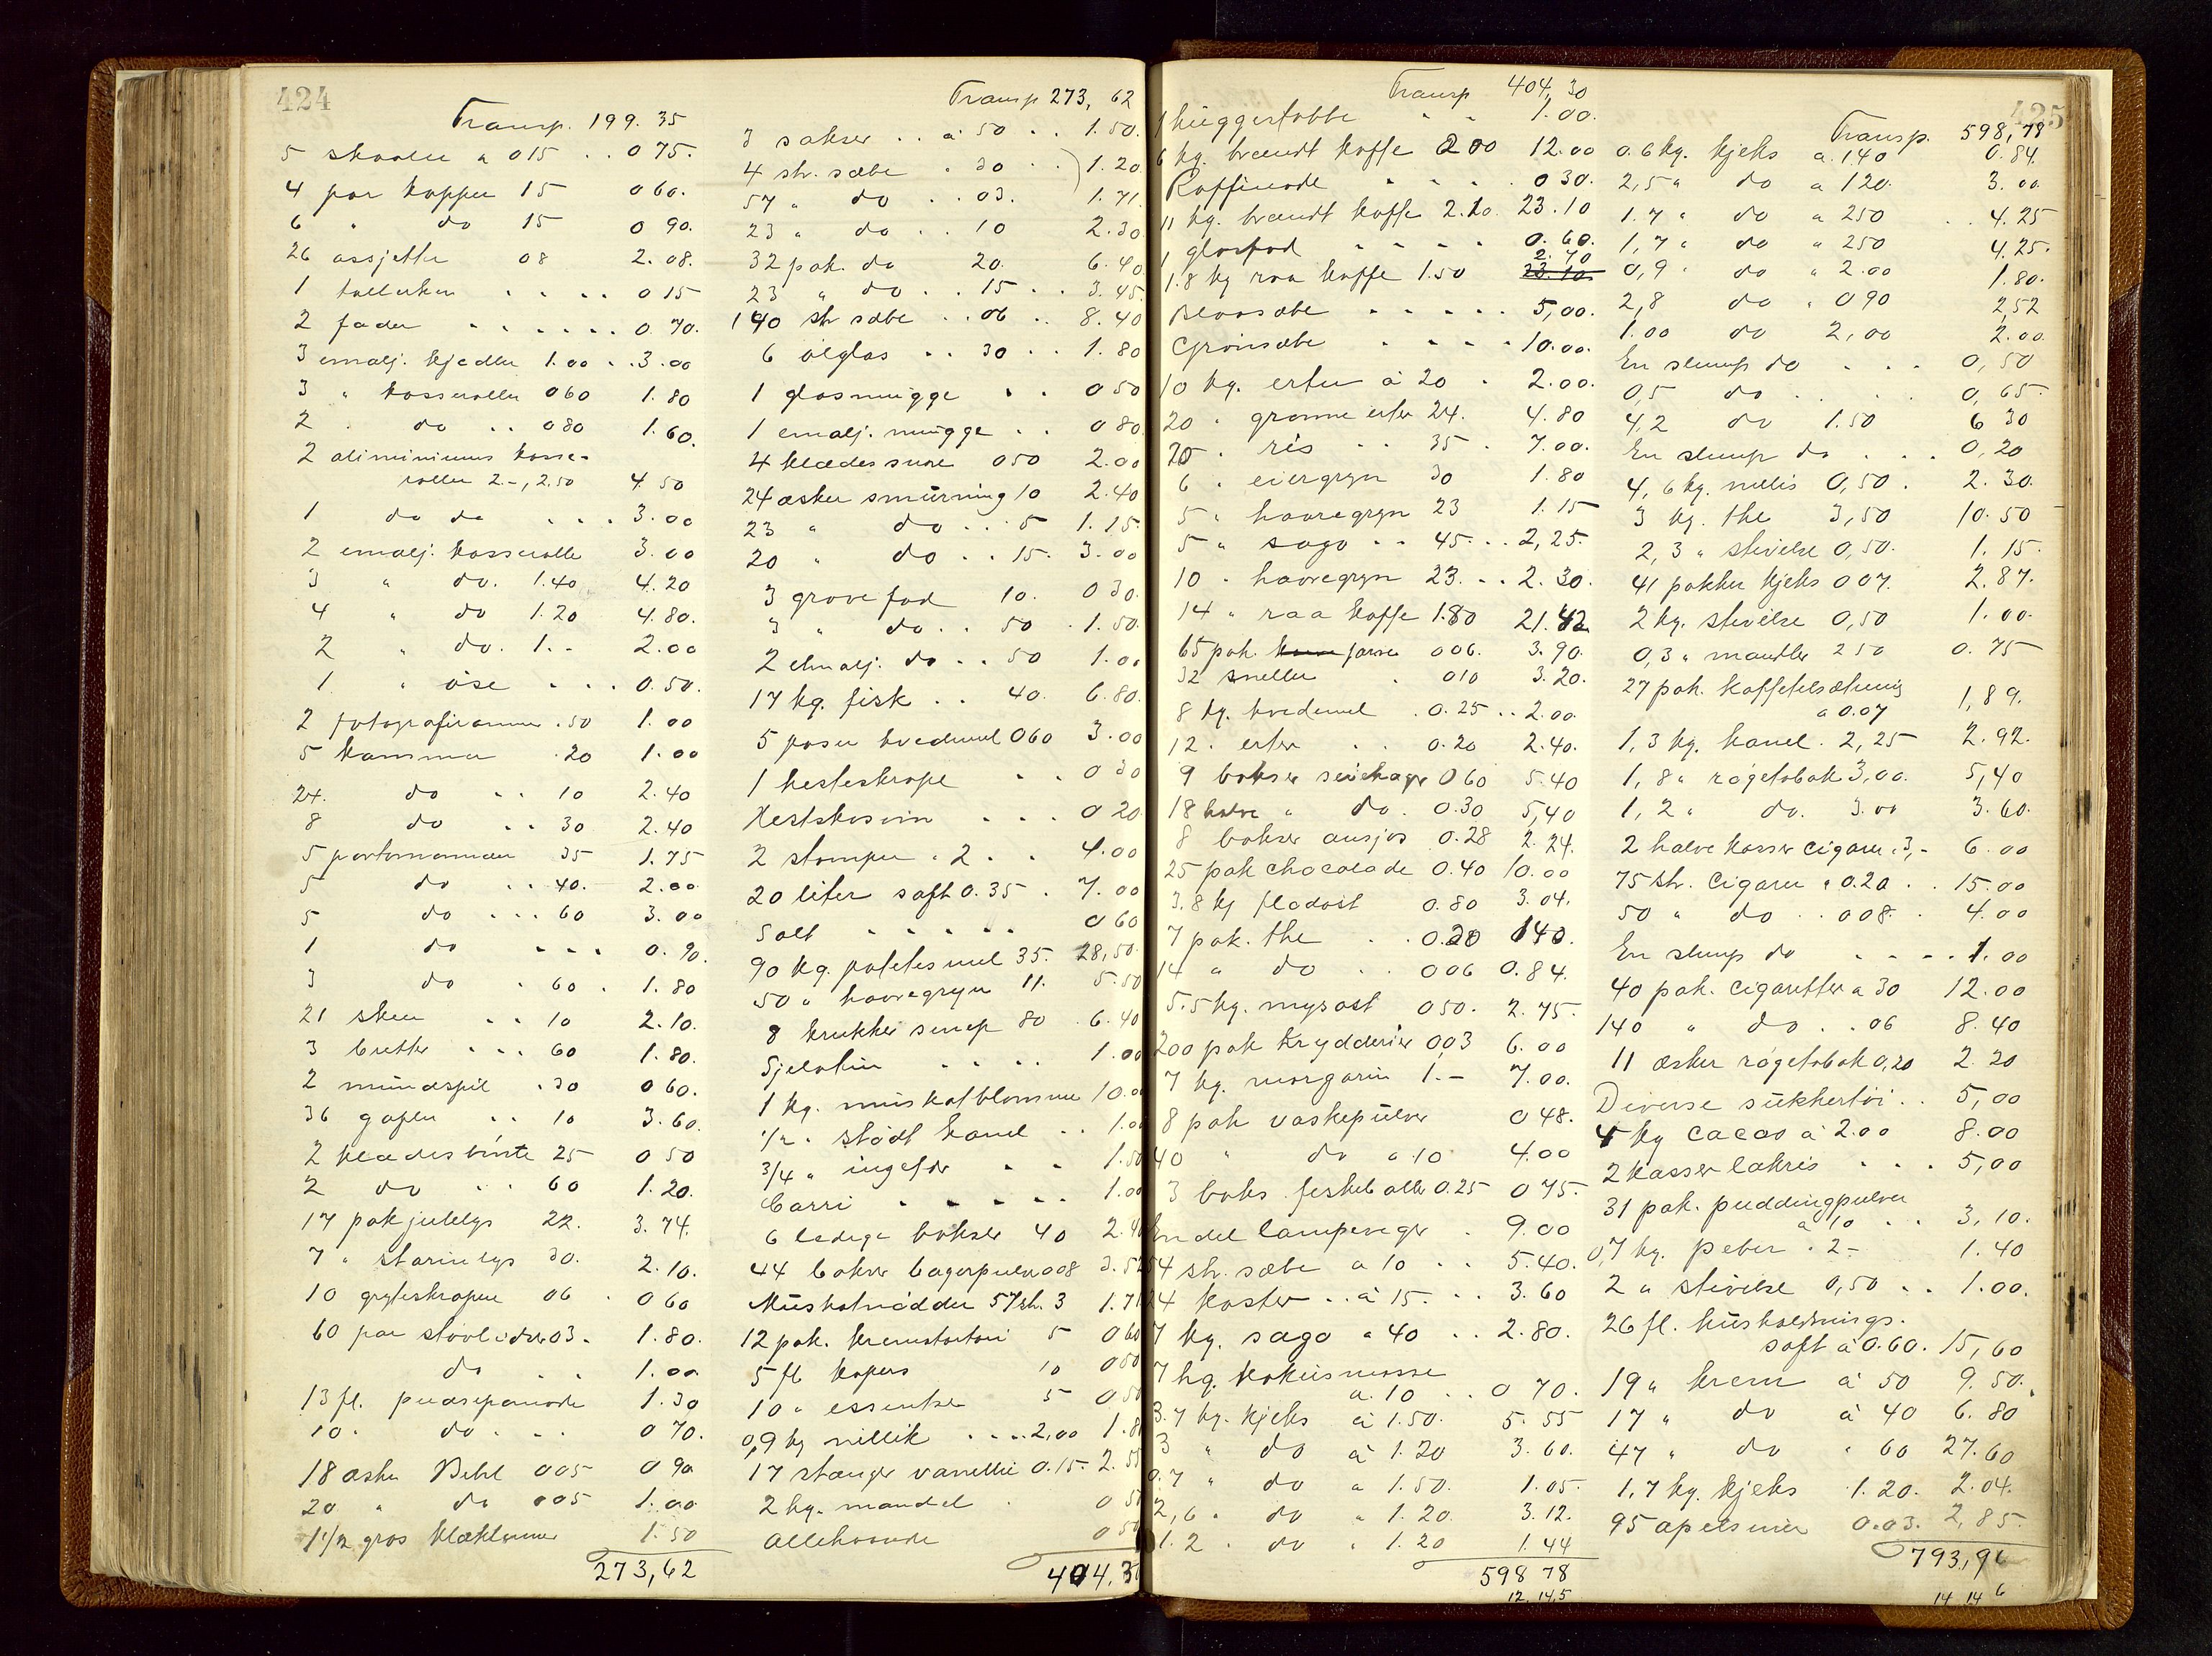 424
Transp. 199. 35
5 skaaler a 015 . . 0 75.
4 par kopper 15 0 60.
6 " do 15 0 90.
26 assjetter 08 2.08.
1 tallerken . . . . 0 15
2 fader . . . . . . 0. 70.
3 emalj. kjedler 1.00 . . 3.00
3 " kasseroller 060 1.80
2 " do . . 080 1.60.
2 aliminiums kasse-
roller 2-, 2.50 4 50
1 do do . . . 3.00
2 emalj. kasserolle 3.00
3 " do. 1.40 4.20
4 " do 1.20 4.80.
2 " do. 1.- 2.00
1 " öse . . . 0.50.
2 fotografirammer . 50 1.00
5 kammer . 20 1.00
24. do . . 10 2.40
8 do . . 30 2.40
5 portemonnaer 35 1.75
5 do . . 40. 2.00
5 do . . . 60 3.00
1 do . . . 0.90.
3 do . 60 . 1.80
21 skeer . . 10 2.10.
3 bretter . . . 60 1.80.
2 mundspil . 30 0 60.
36 gafler . . 10 3.60.
2 klædesbörste 25 0 50
2 do . . 60 1.20.
17 pak julelys 22. 3.74.
7 " starinlys 30. 2.10.
10 gryteskraper 06 . 0 60
60 par stövlidser 03. 1.80.
do . . 1.00
13 fl. pudsepomade 1.30
10. do . . . 0 70.
18 æsker Bebl 005 0 90
20 " do 005 1.00
1 1/2 gros klæklemmer 1.50
273,62
Transp 273, 62
3 sakser . . a 50 . . 1.50.
4 stk. sæbe . 30 . . 1.20
57 " do . . 03. 1.71
23 " do . . 10 2.30
32 pak. do 20. 6.40
23 " do . . 15 . . 3.45
140 stk sæbe . . 06 . . 8.40
6 ölglas . . 30 . . 1.80
1 glasmugge . . 0 50
1 emalj. mugge . . 0 80
4 klædessnore 050 2.00
24 æsker smurning 10 2.40
23 " do . . . 5 1.15
20 " do . . 15. 3.00
3 grovefad 10. 0 30.
3 " do . . 50 . 1.50.
2 emalj. do . . 50 1.00
17 kg. fisk . . 40. 6.80.
5 poser hvedemel 060 3.00
1 hesteskrape . . 0 30
Hestskosöm . . . 0 20
2 stamper . 2 . . 4.00
20 liter saft 0.35 . 7.00
Salt . . . . . 0 60
90 kg. potetesmel 35. 28,50.
50 " havregryn 11. 5.50
8 krukker senep 80 . 6.40
Sjelatin . . . . 1.00
1 kg. muskatblomme 10.0
1/2 " stödt kanel . . 1.00
3/4 " ingefær . . 1.50
Carri . . . . . 1.00
6 ledige bokser 40 2.4
44 bokser bagerpulver 008 3.52
Muskatnödder 57 stk. 3 1.71
12 pak. kremtartari 5 0 60
5 fl kapers 10 0 50
10 " essentser 5 0 50
0,9 kg nillik . . . . 2,00 1.8
17 stænger vanellie 0.15. 2.55
2 hg. mandel . 0 50
Allehaande 0 50
404,3
Transp 404,30
1 huggestabbe . . 1.00.
6 kg. brændt kaffe 200 12.00
Raffinade . . . . 0 30.
11 kg. brændt kaffe 2.10 23.10
1 glasfad . . . . 0.60.
1.8 kg raa kaffe 1.50 2.70
Blaasæbe . . . . . 5,00.
Grönsæbe . . . . 10.00.
10 kg. erter à 20 . 2.00.
20 . grønne erter 24. 4.80
20 . ris . . 35 . 7.00.
6 . eiergryn 30 1.80
5 " havregryn 23 1.15
5 " sago . . 45 . . 2,25.
10 . havregryn 23. . . 2.30.
14 " raa kaffe 1.80 21.42
65 pak. farver 006. 3.90.
32 sneller . 010 3.20.
8 kg. hvedemel . 0.25 . . 2.00.
12. erter . . 0.20 2.40.
9 bokser seiekager 060 5.40
18 halve " do . 0.30 5,40
8 bokser ansjos 0.28 2.24.
25 pak chocolade 0.40 10.00
3.8 kg flodost 0.80 3.04.
7 pak. the . . 0.20 140.
14 " do . . 006 0.84.
5.5 kg. mysost 050. 2.75.
200 pak krydderier 003 6.00
7 kg. margarin 1.- 7.00.
8 pak vaskepulver 0 48.
40 " do a 10 4.00
3 boks. feskeboller 0.25 0 75.
En del lampeveger . 9.00
54 stk. sæbe a 10 . . 5.40.
24 koster . . à 15 . . 3.60
7 kg. sago a 40 . . 2.80.
7 hg. kokusmasse
a. 10 . . 0 70.
3.7 kg. kjeks à 1.50. 5.55
3 " do à 1.20 3.60.
0.7 " do a 1.50. 1.05.
2,6 . do " 1.20. 3.12.
1.2 . do . 1.20 1.44
598 78
12 14,5
425
Transp. 598,78
0.6 kg. kjeks a. 140 0.84.
2,5 " do a 120. 3.00
1.7 " do a 250 . . 4.25
1,7 " do " 250 4.25.
0,9 " do " 2.00 1.80.
2,8 do . 090 2,52
1.00 do 2,00 2.00
En slump do . . . 0,50
0,5 do . . . . 0,65.
4,2 do 1.50 6 30
En slump do . . . 0,20
4,6 kg. melis 0,50. 2.30.
3 kg. the 3,50 10.50
2,3 " stivelse 0,50. 1.15.
41 pakker kjeks 007. 2.87.
2 kg. stivelse 0,50 1.00.
0,3 " mandler 250 0.75
27 pak. kaffetilsætning
a 0.07 1,89.
1,3 kg. kanel. 2,25 2.92.
1,8 " rögetobak 3,00. 5,40
1,2 " do. 3.00 3.60.
2 halve kasser cigarer . 3,- 6.00
75 stk. cigarer a 0.20 . . 15.00
50 " do . . 008. . 4.00
En slump do . . . . 1.00
40 pak. cigaretter a 30 12.00
140 " do . . 06 8.40
11 æsker rögetobak 0,20 2.20
Diverse sukkertöi . . 5,00
4 kg cacao à 2.00 8.00
2 kasser lakris . . . 5,00
31 pak. puddingpulver
a 10 . . 3,10.
0,7 kg. peber . 2- 1.40
2 " stivelse 0,50 . . 1.00.
26 fl. husholdnings.
saft à 0.60. 15,60
19 " krem à 50 9.50.
17 " do à 40 6.80
47 " do . 60 27.60
1,7 kg. kjeks 1.20. 2.04.
95 apelsiner 0.03. 2,85.
793,96
14 14 6